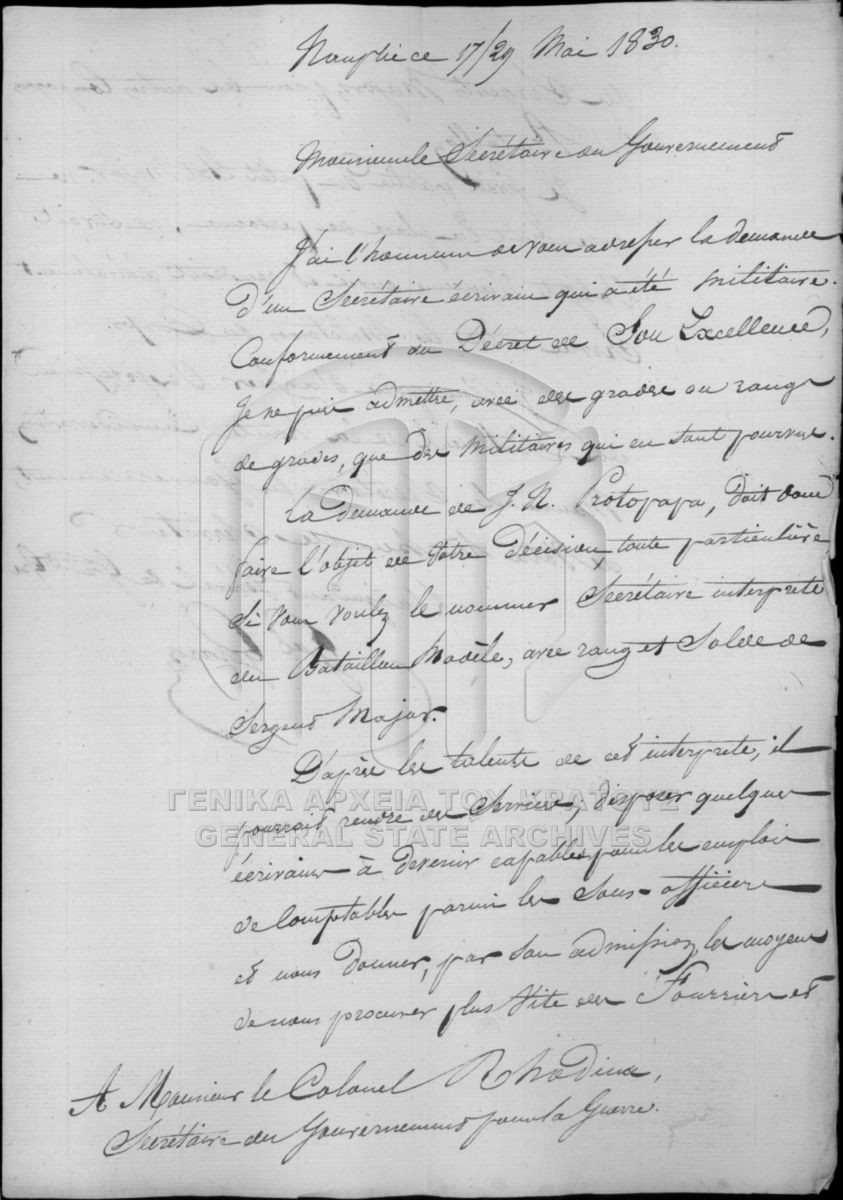 Nauplie ce 17/29 Mai 1830.
Monsieur le Secrétaire du Gouvernement
J'ai l'honneur de vous adresser la demande
d'un Secrétaire écrivain qui a été militaire.
Conformement au Décret de Son Excellence,
Je ne puis admettre, avec des grades ou rangs
de grades, que des militaires qui en sont pourvus.
La demande de J. N. Protopapa, doit donc
faire l'objet de votre décision, toute particulière
Si vous voulez le nommer Secrétaire interprete
du Bataillon Modèle, avec rang et Solde de
Sergent Major.
D'après les talents de cet interprete, il
pourroit rendre des Services, disposer quelques
écrivains à devenir capables pour les emplois
de Comptables parmi les Sous-officiers
et nous donner, par son admission, les moyens
de nous procurer plus vite des Fourriers et
A Monsieur le Colonel Rhodius,
Secrétaire du Gouvernement pour la Guerre.
ΓΕΝΙΚΑ ΑΡΧΕΙΑ ΤΟΥ ΚΡΑΤΟΥΣ
GENERAL STATE ARCHIVES